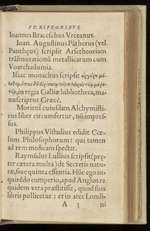 SCRIPTORIBVS
Ioannes Bracescbus Vrceanus.
Ioan. Augustinus Pãtheus (vel
Pantheus) scripsit
trãsmutationis metallicæ cum
Voarchadumia.
Hic monachus scripsit
regia Galliæ bibliotheca, ma-
nuscriptus Græcè.
Morieni cuiusdam Alchymisti-
cus liber circumfertur, nõ impres-
sus.
Philippus Vlstadius edidit Cœ-
lum Philosophorum: qui tamen
ad rem nostram spectat.
Raymũdus Lullius scripsit (præ-
ter cætera multa) de Secretis natu-
ræ, siue quinta essentia. Hũc ego in-
quiendo comperio, apud Anglos re
quidem vera præstitisse, quod suis
libris pollicetur: et in arce Londi-
A 3